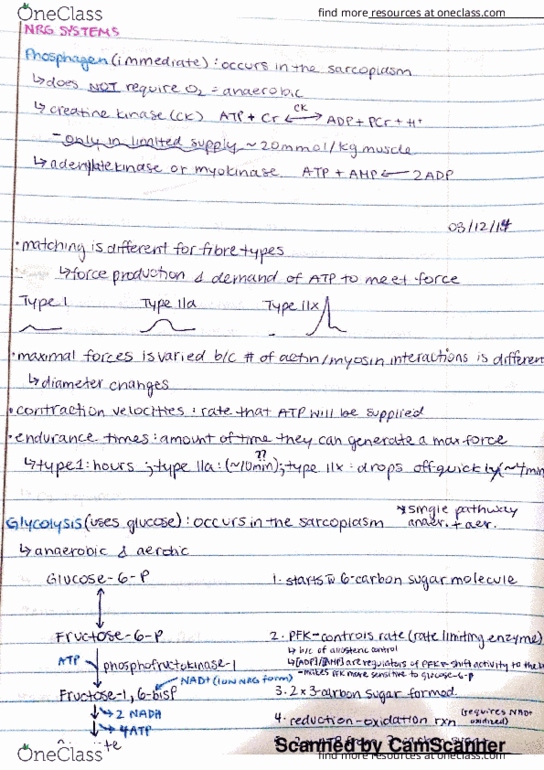 OneClass
find more resources at oneclass.com
NRG SYSTEMS
Phosphagen (immediate) : occurs in the sarcoplasm
↳ does NOT require O2 = anaerobic
↳ creatine kinase (CK) ATP + Cr ←CK→ ADP + PCr + H+
- only in limited supply ~ 20mmol/kg muscle
↳ adenylate kinase or myokinase ATP + AMP ← 2ADP
03/12/14
• matching is different for fibre types
↳ force production & demand of ATP to meet force
Type I Type IIa Type IIx
• maximal forces is varied b/c # of actin/myosin interactions is different
↳ diameter changes
• contraction velocities : rate that ATP will be supplied
• endurance times : amount of time they can generate a max force
↳ type 1: hours ; type IIa : (~10min) ; type IIx : drops off quickly (~4min
??
Glycolysis (uses glucose) : occurs in the sarcoplasm
* single pathway
anaer. + aer.
↳ anaerobic & aerobic
Glucose-6-P 1. starts w 6-carbon sugar molecule
Fructose-6-P 2. PFK - controls rate (rate limiting enzyme)
↳ b/c of allosteric control
ATP phosphofructokinase-1 ↳ [ADP]/[AMP] are regulators of PFK → shift activity to the
- makes PFK more sensitive to glucose-6-p
NAD+ (low NRG form)
Fructose-1,6-bisP 3. 2 x 3-carbon sugar formed
↳ 2 NADH 4. reduction-oxidation rxn (requires NAD+
oxidized)
↳ 4ATP
OneClass
Scanned by CamScanner
find more resources at oneclass.com